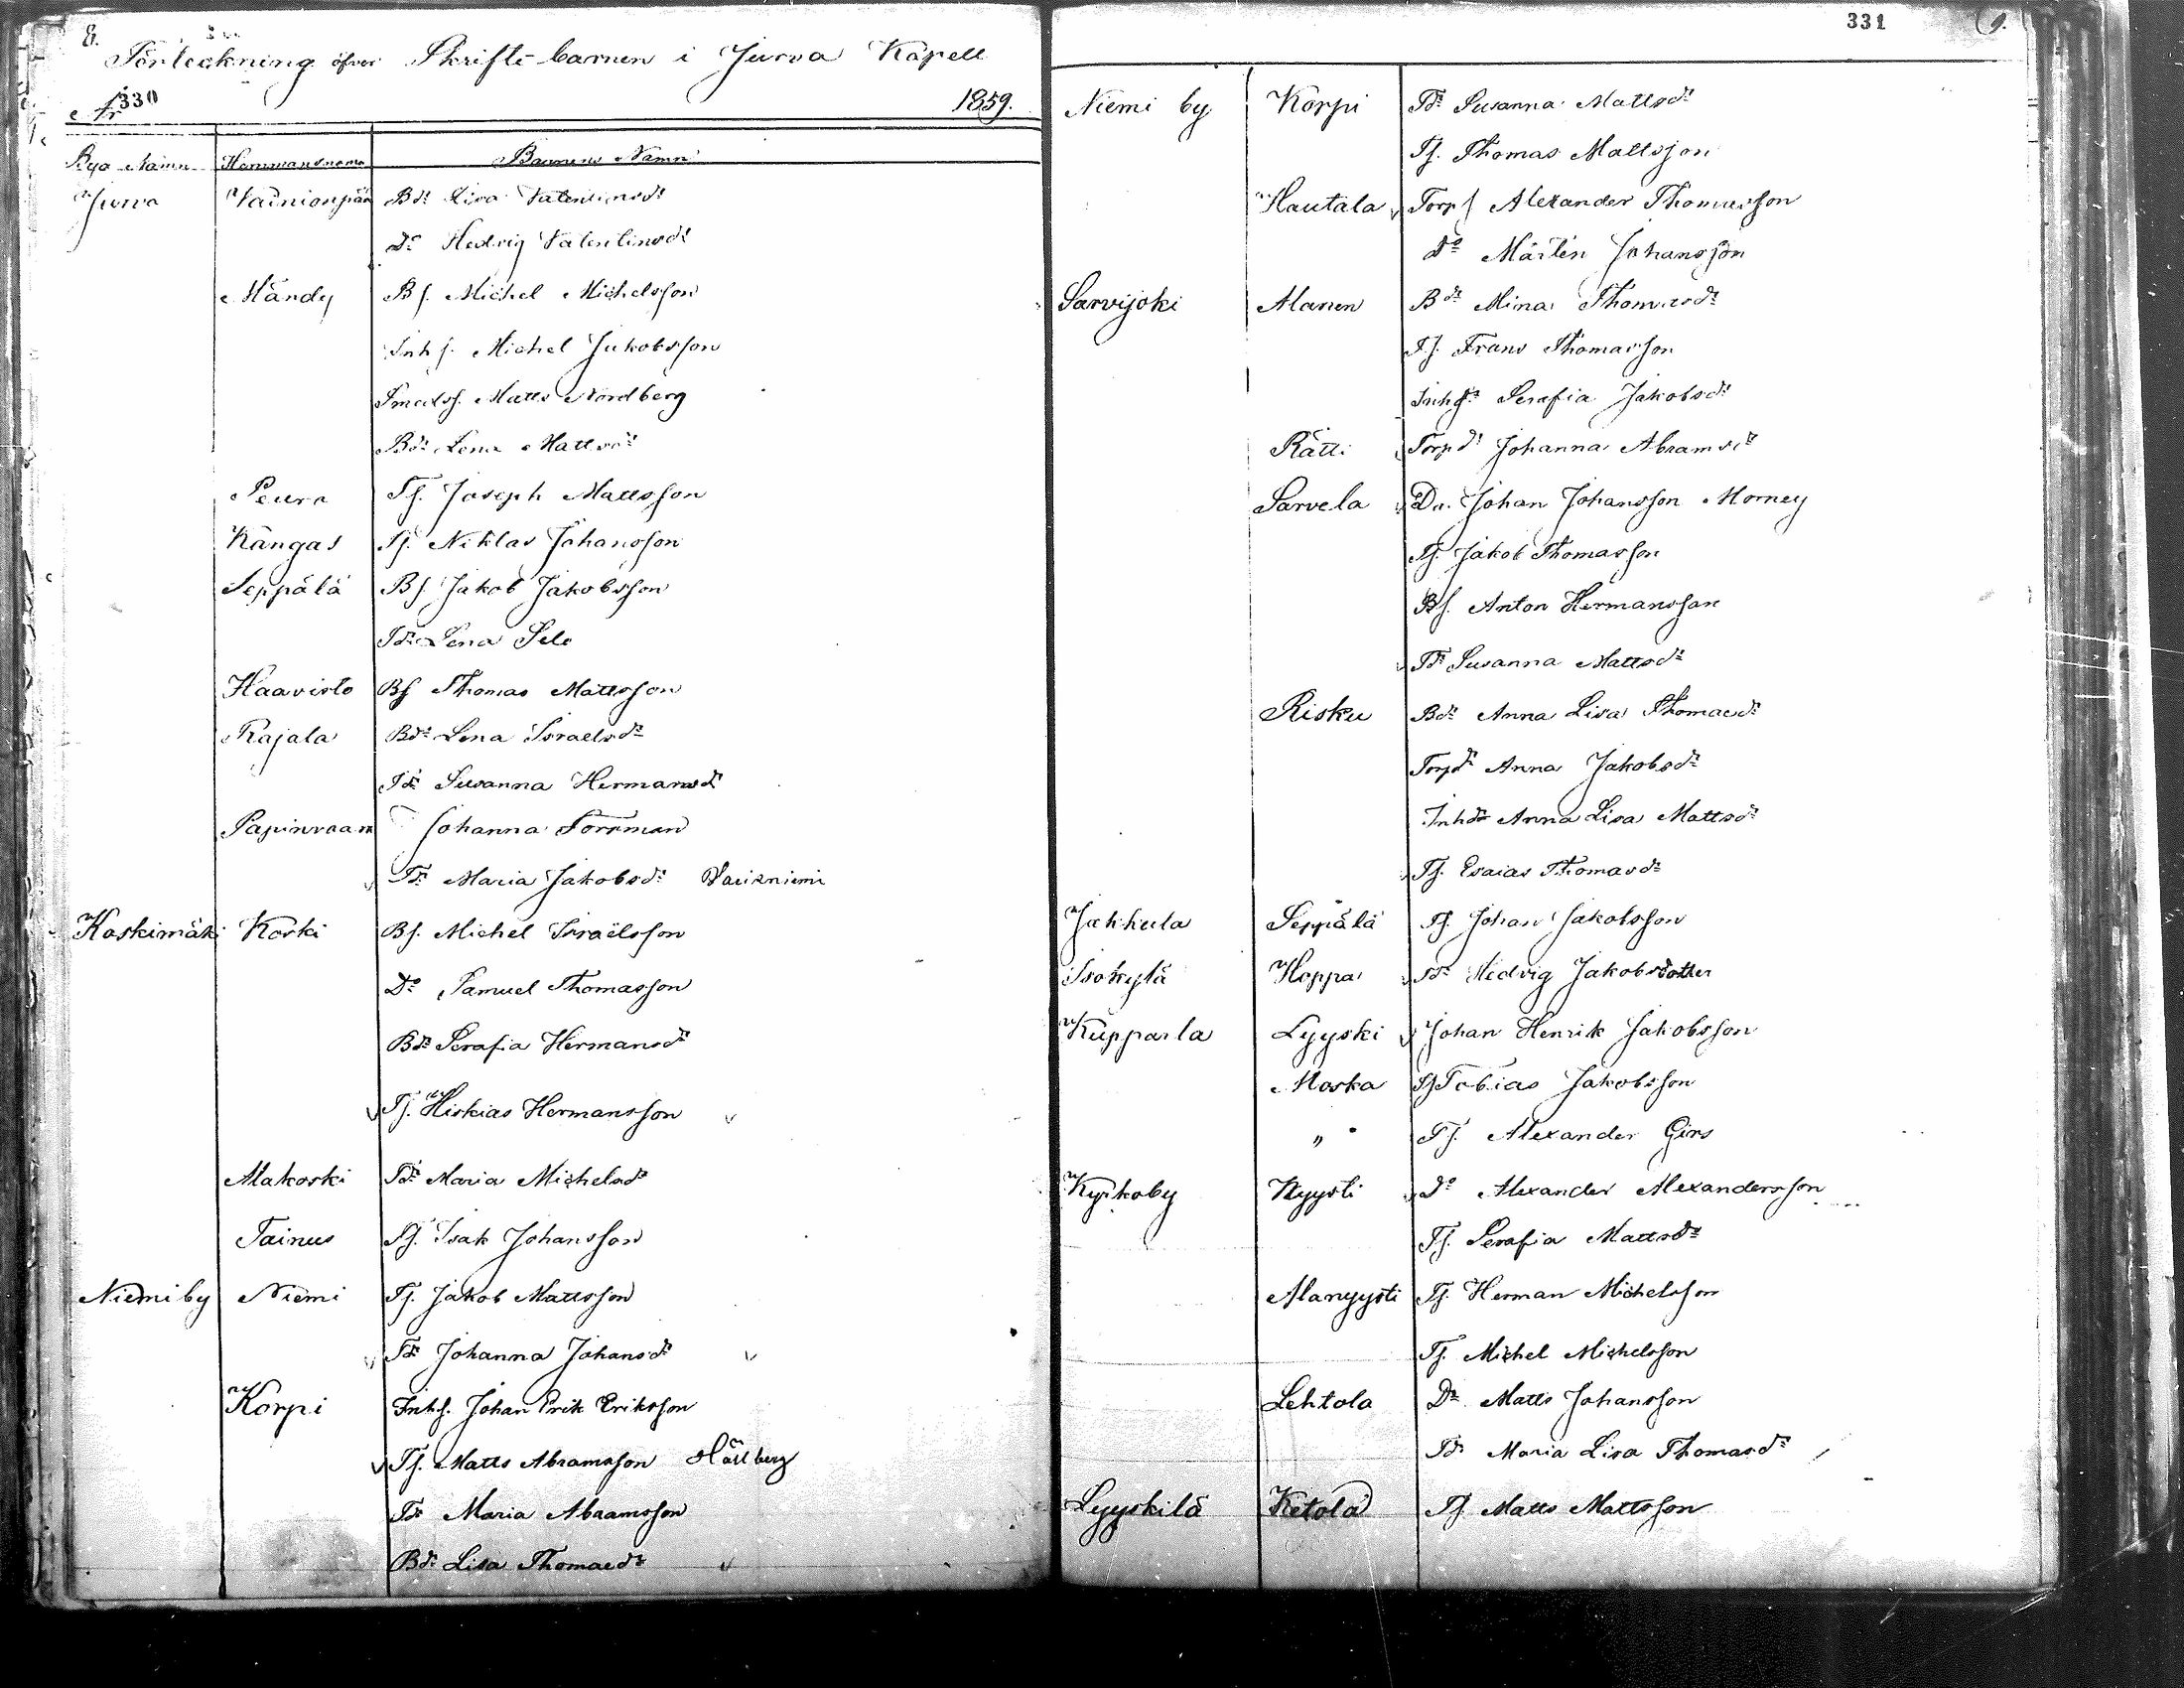 8.
Förteckning öfver Skrifte-barnen i Jurva Kapell
År 330 1859.
Bya Namn Hemmansnamn Barnens Namn
Jurva Vainionpää Bdr Lisa Valentinsdr
Do Hedvig Valentinsdr
Mändy Bs. Michel Michelsson
Inhs. Michel Jakobsson
Smeds. Matts Nordberg
Bdr Lena Mattsdr
Peura Ts. Joseph Mattsson
Kangas Ts. Niklas Johansson
Seppälä Bs. Jakob Jakobsson
Idr Lena Sele
Haavisto Bs Thomas Mattsson
Rajala Bdr Lena Israelsdr
Idr Susanna Hermansdr
Papinvaan Johanna Forsman
Tdr Maria Jakobsdr
Koskimäki Koski Bs. Michel Israelsson
Do Samuel Thomasson
Bdr Serafia Hermansdr
Ts. Hiskias Hermansson
Alakoski Tdr Maria Michelsdr
Tainus Ts. Isak Johansson
Niemi by Niemi Ts. Jakob Mattsson
Tdr Johanna Johansdr
Korpi Inhs. Johan Erik Eriksson
Ts. Matts Abramsson Hällberg
Tdr Maria Abramsson
Bdr Lisa Thomasdr
331 9.
Niemi by Korpi Tdr Susanna Mattsdr
Ts. Thomas Mattsson
Hautala Torps Alexander Thomasson
Do Mårten Johansson
Sarvijoki Alanen Bdr Mina Thomasdr
Ts. Frans Thomasson
Inhdr Serafia Jakobsdr
Rätti Torpdr Johanna Abramsdr
Sarvela Do. Johan Johansson Morney
Ts. Jakob Thomasson
Bs. Anton Hermansson
Tdr Susanna Mattsdr
Risku Bdr Anna Lisa Thomasdr
Torpdr Anna Jakobsdr
Inhdr Anna Lisa Mattsdr
Ts. Esaias Thomasdr
Jakkula Seppälä Ts. Johan Jakobsson
Isokylä Hoppa Tdr Hedvig Jakobsdotter
Kupparla Lyyski Johan Henrik Jakobsson
Moska Ts Tobias Jakobsson
" " Ts. Alexander Girs
Kyrkoby Nyysti Do Alexander Alexandersson
Ts. Serafia Mattsdr
Alanyysti Ts. Herman Michelsson
Ts. Michel Michelsson
Lehtola Do Matts Johansson
Tdr Maria Lisa Thomasdr
Lyyskilä Ketola Ts Matts Mattsson